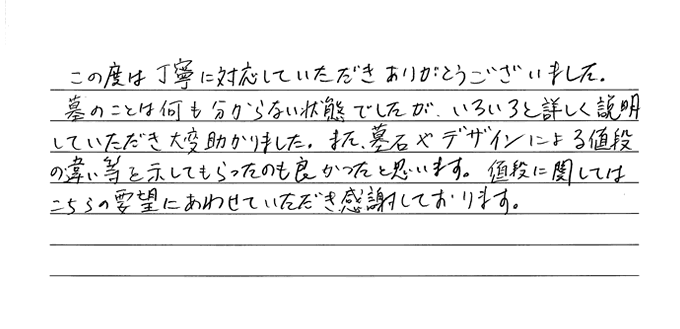 この度は丁寧に対応していただきありがとうございました。
墓のことは何も分からない状態でしたが、いろいろと詳しく説明
していただき大変助かりました。また、墓石やデザインによる値段
の違い等を示してもらったのも良かったと思います。値段に関しては
こちらの要望にあわせていただき感謝しております。